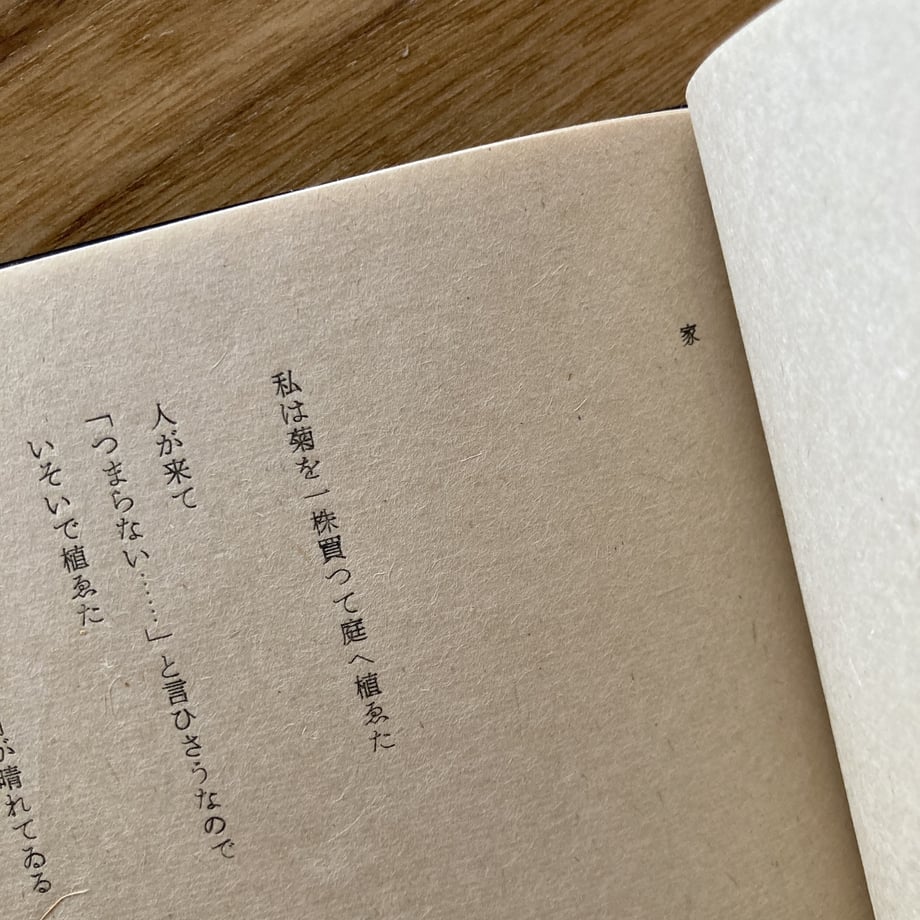 家
私は菊を一株買つて庭へ植ゑた
人が来て
「つまらない……」と言ひさうなので
いそいで植ゑた
が晴れてゐる